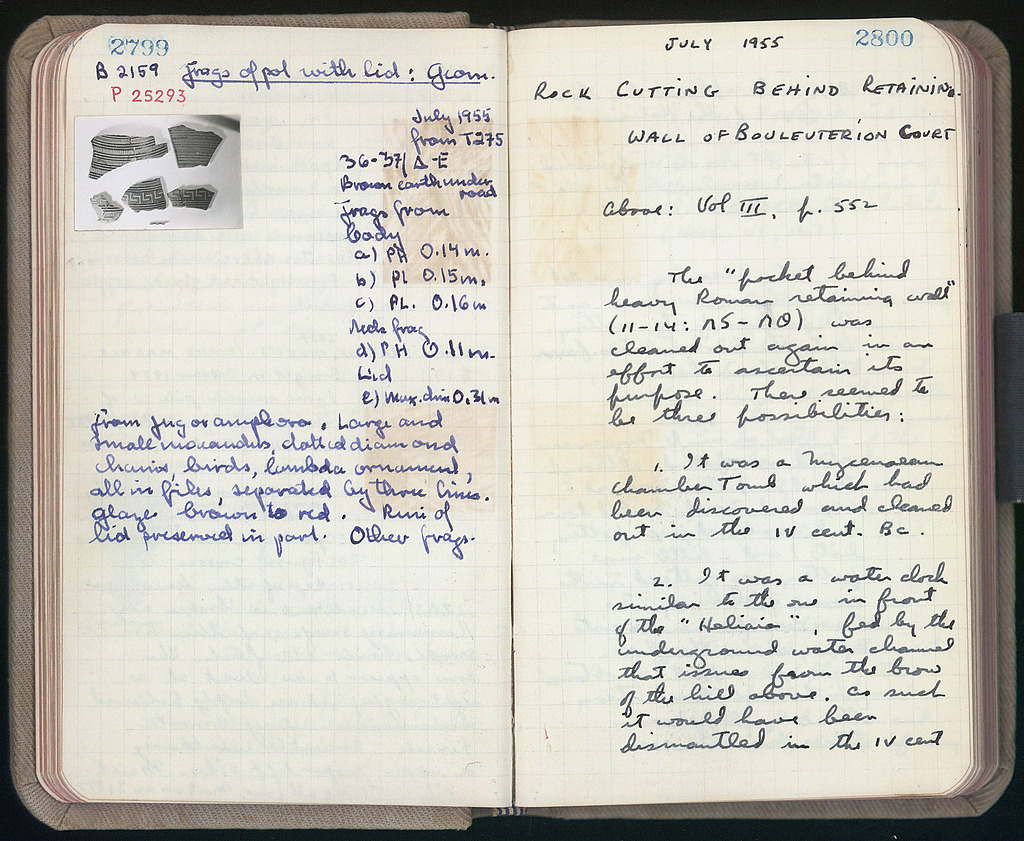 2799
B 2159 Frags of pot with lid : Geom.
P 25293
July, 1955
from T275
36-37/Δ-E
Brown earth under
road
Frags from
body
a) PH 0.14 m.
b) PL 0.15 m.
c) PL. 0.16 m
Neck frag
d) PH 0.11 m.
Lid
e) Max. dim 0.31 m
From jug or amphora. Large and
small maeander, dotted diamond
chains, birds, lambda ornament,
all in files, separated by three lines.
glaze brown to red. Rim of
lid preserved in part. Other frags.
JULY 1955 2800
ROCK CUTTING BEHIND RETAINING
WALL OF BOULEUTERION COURT
Above: Vol III, p. 552
The "pocket behind
heavy Roman retaining wall"
(11-14: ΛS - ΛΘ) was
cleaned out again in an
effort to ascertain its
purpose. There seemed to
be three possibilities:
1. It was a Mycenaean
chamber Tomb which had
been discovered and cleaned
out in the IV cent. BC.
2. It was a water clock
similar to the one in front
of the "Heliaia", fed by the
underground water channel
that issues from the brow
of the hill above. As such
it would have been
dismantled in the IV cent